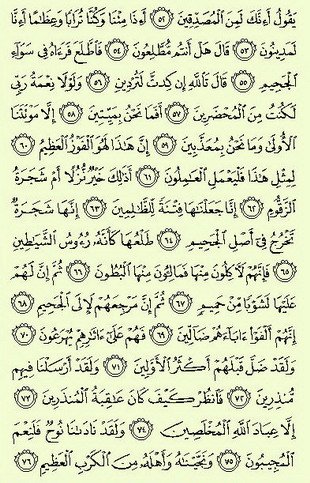 يَقُولُ أَءِنَّكَ لَمِنَ ٱلْمُصَدِّقِينَ ۝٥٢ أَءِذَا مِتْنَا وَكُنَّا تُرَابًا وَعِظَٰمًا أَءِنَّا
لَمَدِينُونَ ۝٥٣ قَالَ هَلْ أَنتُم مُّطَّلِعُونَ ۝٥٤ فَٱطَّلَعَ فَرَءَاهُ فِى سَوَآءِ
ٱلْجَحِيمِ ۝٥٥ قَالَ تَٱللَّهِ إِن كِدتَّ لَتُرْدِينِ ۝٥٦ وَلَوْلَا نِعْمَةُ رَبِّى
لَكُنتُ مِنَ ٱلْمُحْضَرِينَ ۝٥٧ أَفَمَا نَحْنُ بِمَيِّتِينَ ۝٥٨ إِلَّا مَوْتَتَنَا
ٱلْأُولَىٰ وَمَا نَحْنُ بِمُعَذَّبِينَ ۝٥٩ إِنَّ هَٰذَا لَهُوَ ٱلْفَوْزُ ٱلْعَظِيمُ ۝٦٠
لِمِثْلِ هَٰذَا فَلْيَعْمَلِ ٱلْعَٰمِلُونَ ۝٦١ أَذَٰلِكَ خَيْرٌ نُّزُلًا أَمْ شَجَرَةُ
ٱلزَّقُّومِ ۝٦٢ إِنَّا جَعَلْنَٰهَا فِتْنَةً لِّلظَّٰلِمِينَ ۝٦٣ إِنَّهَا شَجَرَةٌ
تَخْرُجُ فِىٓ أَصْلِ ٱلْجَحِيمِ ۝٦٤ طَلْعُهَا كَأَنَّهُۥ رُءُوسُ ٱلشَّيَٰطِينِ
۝٦٥ فَإِنَّهُمْ لَءَاكِلُونَ مِنْهَا فَمَالِـُٔونَ مِنْهَا ٱلْبُطُونَ ۝٦٦ ثُمَّ إِنَّ لَهُمْ
عَلَيْهَا لَشَوْبًا مِّنْ حَمِيمٍ ۝٦٧ ثُمَّ إِنَّ مَرْجِعَهُمْ لَإِلَى ٱلْجَحِيمِ ۝٦٨
إِنَّهُمْ أَلْفَوْا۟ ءَابَآءَهُمْ ضَآلِّينَ ۝٦٩ فَهُمْ عَلَىٰٓ ءَاثَٰرِهِمْ يُهْرَعُونَ ۝٧٠
وَلَقَدْ ضَلَّ قَبْلَهُمْ أَكْثَرُ ٱلْأَوَّلِينَ ۝٧١ وَلَقَدْ أَرْسَلْنَا فِيهِم
مُّنذِرِينَ ۝٧٢ فَٱنظُرْ كَيْفَ كَانَ عَٰقِبَةُ ٱلْمُنذَرِينَ ۝٧٣
إِلَّا عِبَادَ ٱللَّهِ ٱلْمُخْلَصِينَ ۝٧٤ وَلَقَدْ نَادَىٰنَا نُوحٌ فَلَنِعْمَ
ٱلْمُجِيبُونَ ۝٧٥ وَنَجَّيْنَٰهُ وَأَهْلَهُۥ مِنَ ٱلْكَرْبِ ٱلْعَظِيمِ ۝٧٦